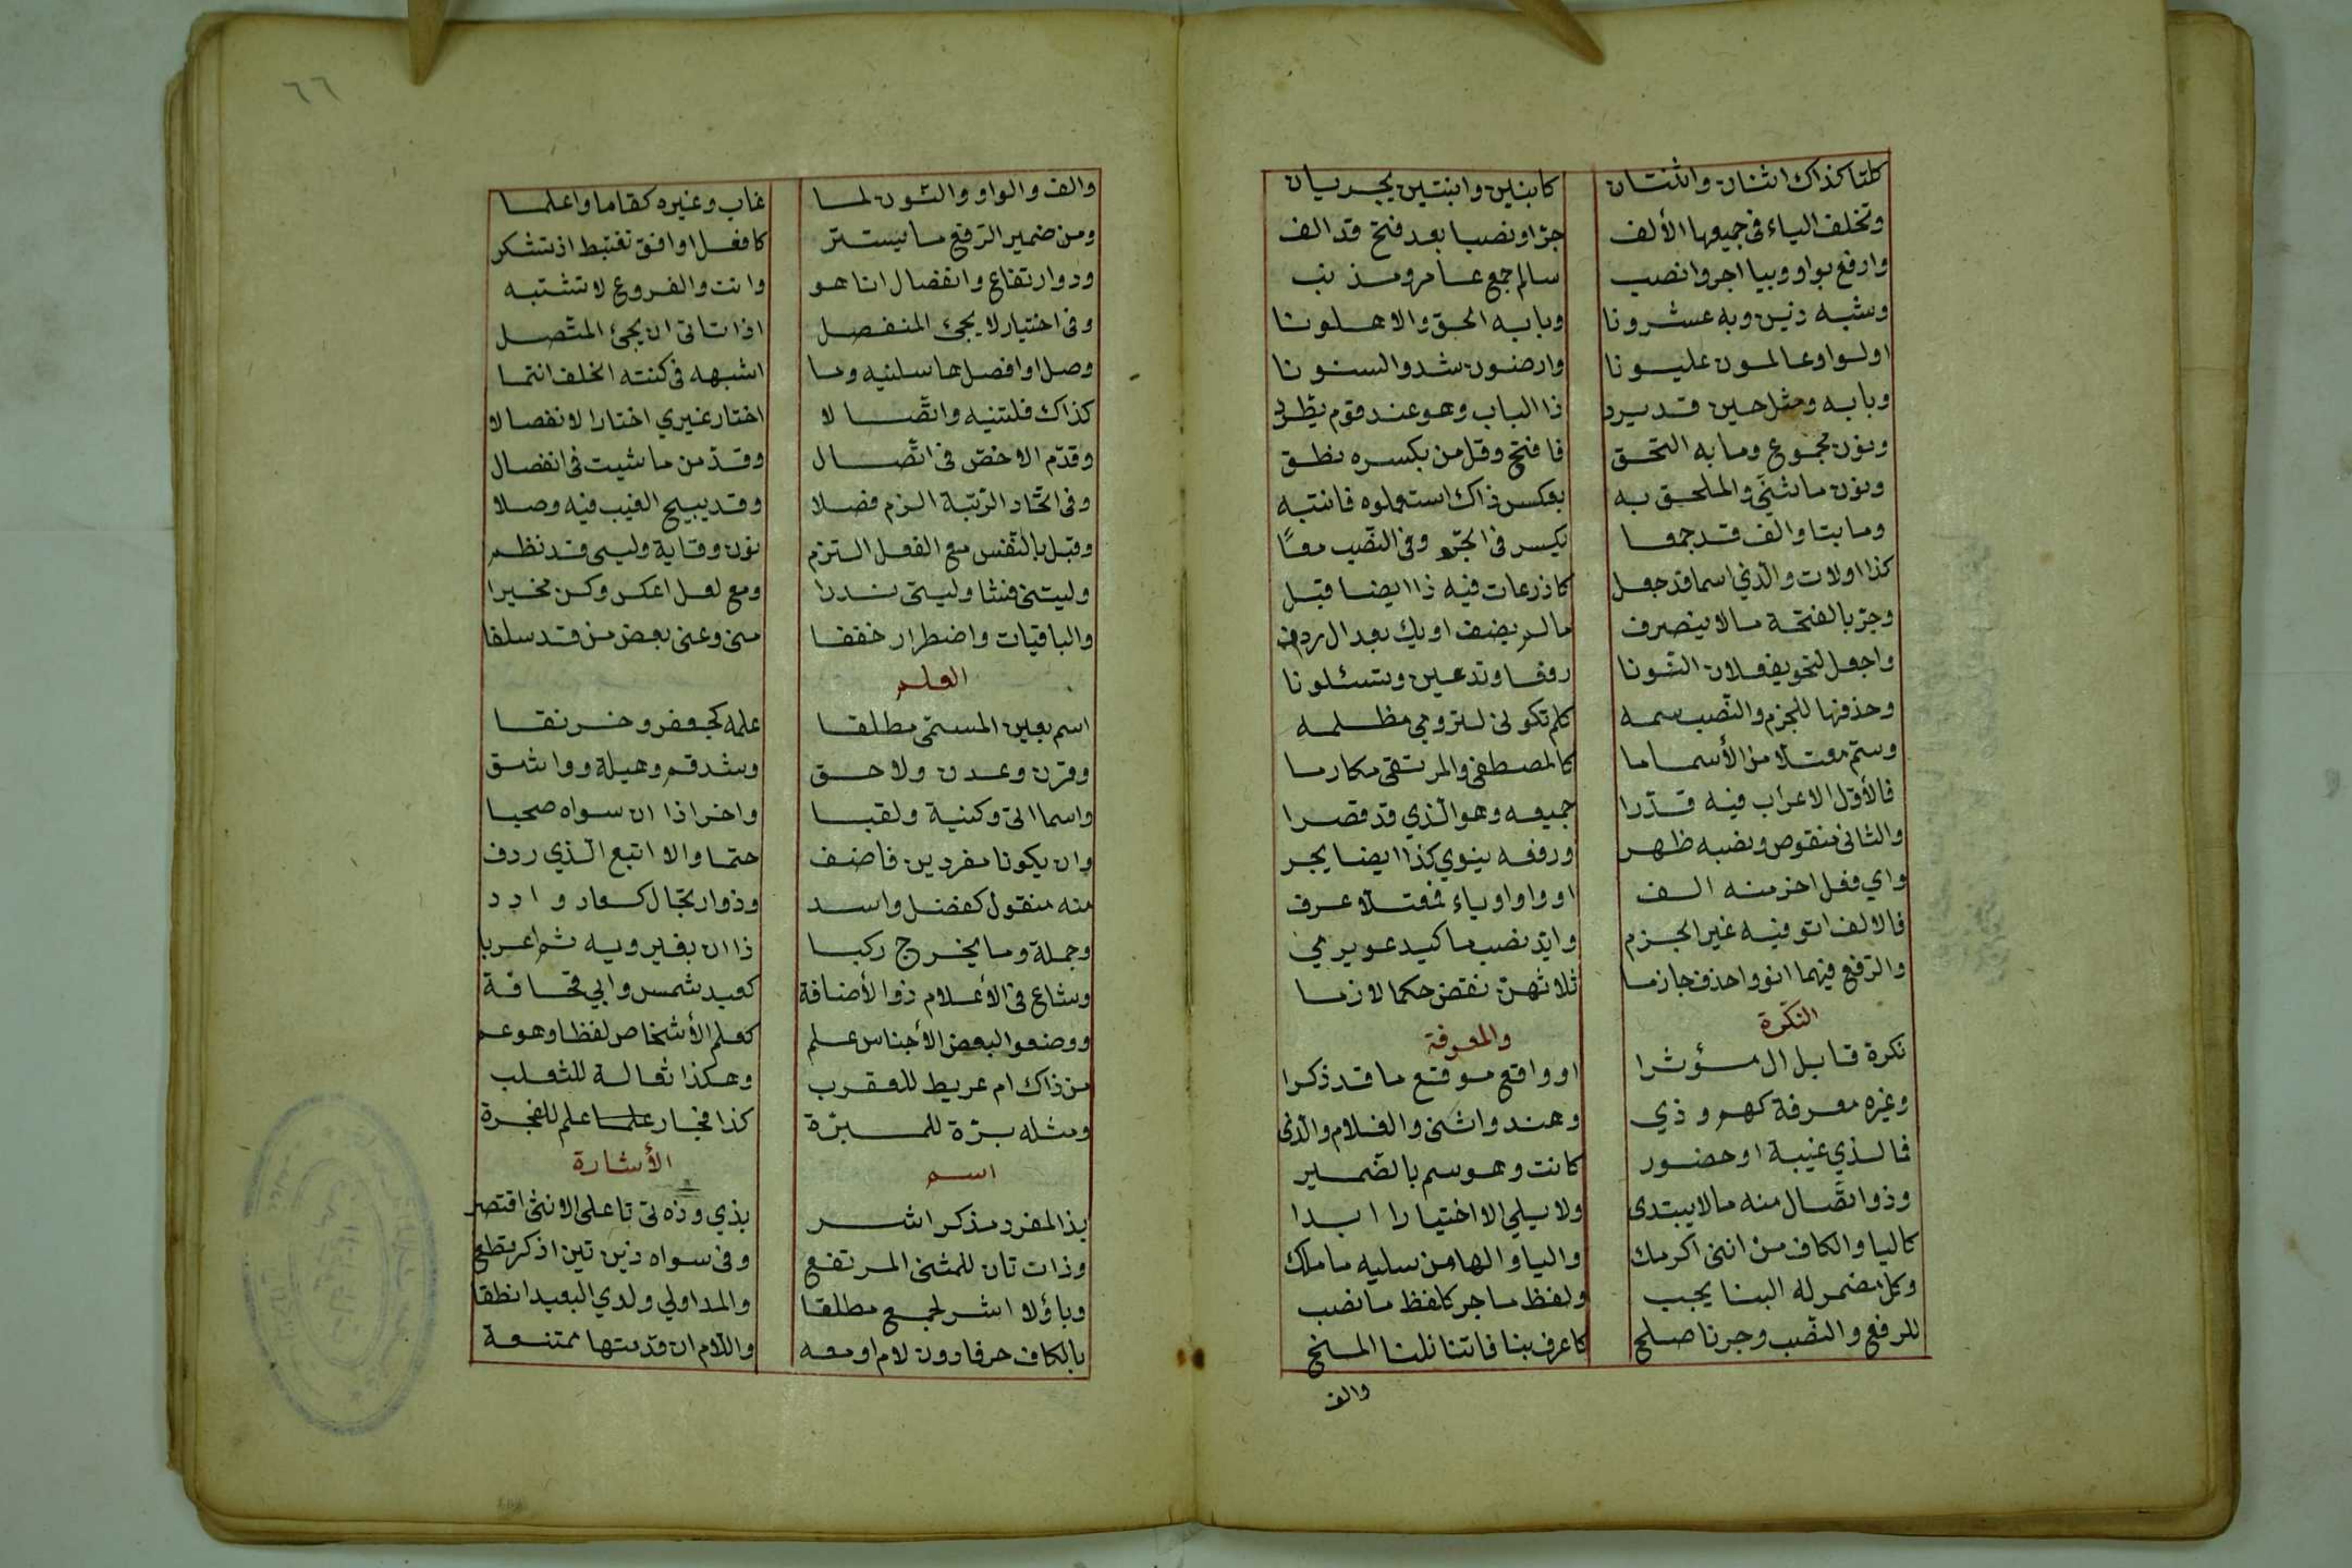 كلتا كذاك اثنان واثنتان كابنين وابنتين يجريان
وتخلف الياء في جميعها الألف جرا ونصبا بعد فتح قد الف
وارفع بواو وبيا اجر وانصب سالم جمع عامر ومذنب
وشبه ذين وبه عشرونا وبابه الحق والاهلونا
اولوا وعالمون عليونا وارضون شد والسنونا
وبابه ومثل حين قد يرد ذا الباب وهو عند قوم يطرد
ونون مجموع وما به التحق فافتح وقل من بكسره نطق
ونون ما ثني والملحق به بعكس ذاك استعملوه فانتبه
وما بتا والف قد جمعا يكسر في الجر وفي النصب معا
كذا اولات والذي اسما قد جعل كاذرعات فيه ذا ايضا قبل
وجر بالفتحة ما لا ينصرف ما لم يضف او يك بعد ال ردف
واجعل لنحو يفعلان النونا رفعا وتدعين وتسئلونا
وحذفها للجزم والنصب سمه كلم تكوني لترومي مظلمه
وسم معتلا من الأسما ما كالمصطفى والمرتقي مكارما
فالأول الاعراب فيه قدرا جميعه وهو الذي قد قصرا
والثاني منقوص ونصبه ظهر ورفعه ينوي كذا ايضا يجر
واي فعل اخر منه الف او واو او ياء فمعتلا عرف
فالالف انو فيه غير الجزم وابد نصب ما كيدعو يرمي
والرفع فيهما انو واحذف جازما ثلاثهن تقض حكما لازما
النكرة والمعرفة
نكرة قابل ال مؤثرا او واقع موقع ما قد ذكرا
وغيره معرفة كهم وذي وهند وابني والغلام والذي
فالذي غيبة او حضور كانت وهو سم بالضمير
وذو اتصال منه ما لا يبتدى ولا يلي الا اختيارا ابدا
كاليا والكاف من ابني اكرمك واليا والها من سليه ما ملك
وكل مضمر له البنا يجب ولفظ ما جر كلفظ ما نصب
للرفع والنصب وجر نا صلح كاعرف بنا فاننا نلنا المنح
والف
٦٦
والف والواو والنون لما غاب وغيره كقاما واعلما
ومن ضمير الرفع ما يستتر كافعل اوافق نغتبط اذ تشكر
وذو ارتفاع وانفصال انا هو وانت والفروع لا تشتبه
وفي اختيار لا يجئ المنفصل اذا تاتى ان يجئ المتصل
وصل او افصل هاء سلنيه وما اشبهه في كنته الخلف انتما
كذاك خلتنيه واتصالا اختار غيري اختار الانفصالا
وقدم الاخص في اتصال وقدمن ما شيت في انفصال
وفي اتحاد الرتبة الزم فصلا وقد يبيح الغيب فيه وصلا
وقبل يا النفس مع الفعل التزم نون وقاية وليسي قد نظم
وليتني فشا وليتي ندرا ومع لعل اعكس وكن مخيرا
والباقيات واضطرار خففا مني وعني بعض من قد سلفا
العلم
اسم يعين المسمى مطلقا علمه كجعفر وخرنقا
وقرن وعدن ولاحق وشدقم وهيلة وواشق
واسما اتى وكنية ولقبا واخر اذا ان سواه صحبا
وان يكونا مفردين فاضف حتما والا اتبع الذي ردف
منه منقول كفضل واسد وذو ارتجال كسعاد وادد
وجملة وما بمزج ركبا ذا ان بغير ويه ثم اعربا
وشاع في الأعلام ذو الأضافة كعبد شمس وابي قحافة
ووضعوا لبعض الأجناس علم كعلم الأشخاص لفظا وهو عم
من ذاك ام عريط للعقرب وهكذا ثعالة للثعلب
ومثله برة للمبرة كذا فجار علما علم للفجرة
اسم الأشارة
بذا لمفرد مذكر اشر بذي وذه تي تا على الانثى اقتصر
وذان تان للمثنى المرتفع وفي سواه ذين تين اذكر تطع
وباولا اشر لجمع مطلقا والمد اولى ولدي البعد انطقا
بالكاف حرفا دون لام او معه واللام ان قدمتها ممتنعة